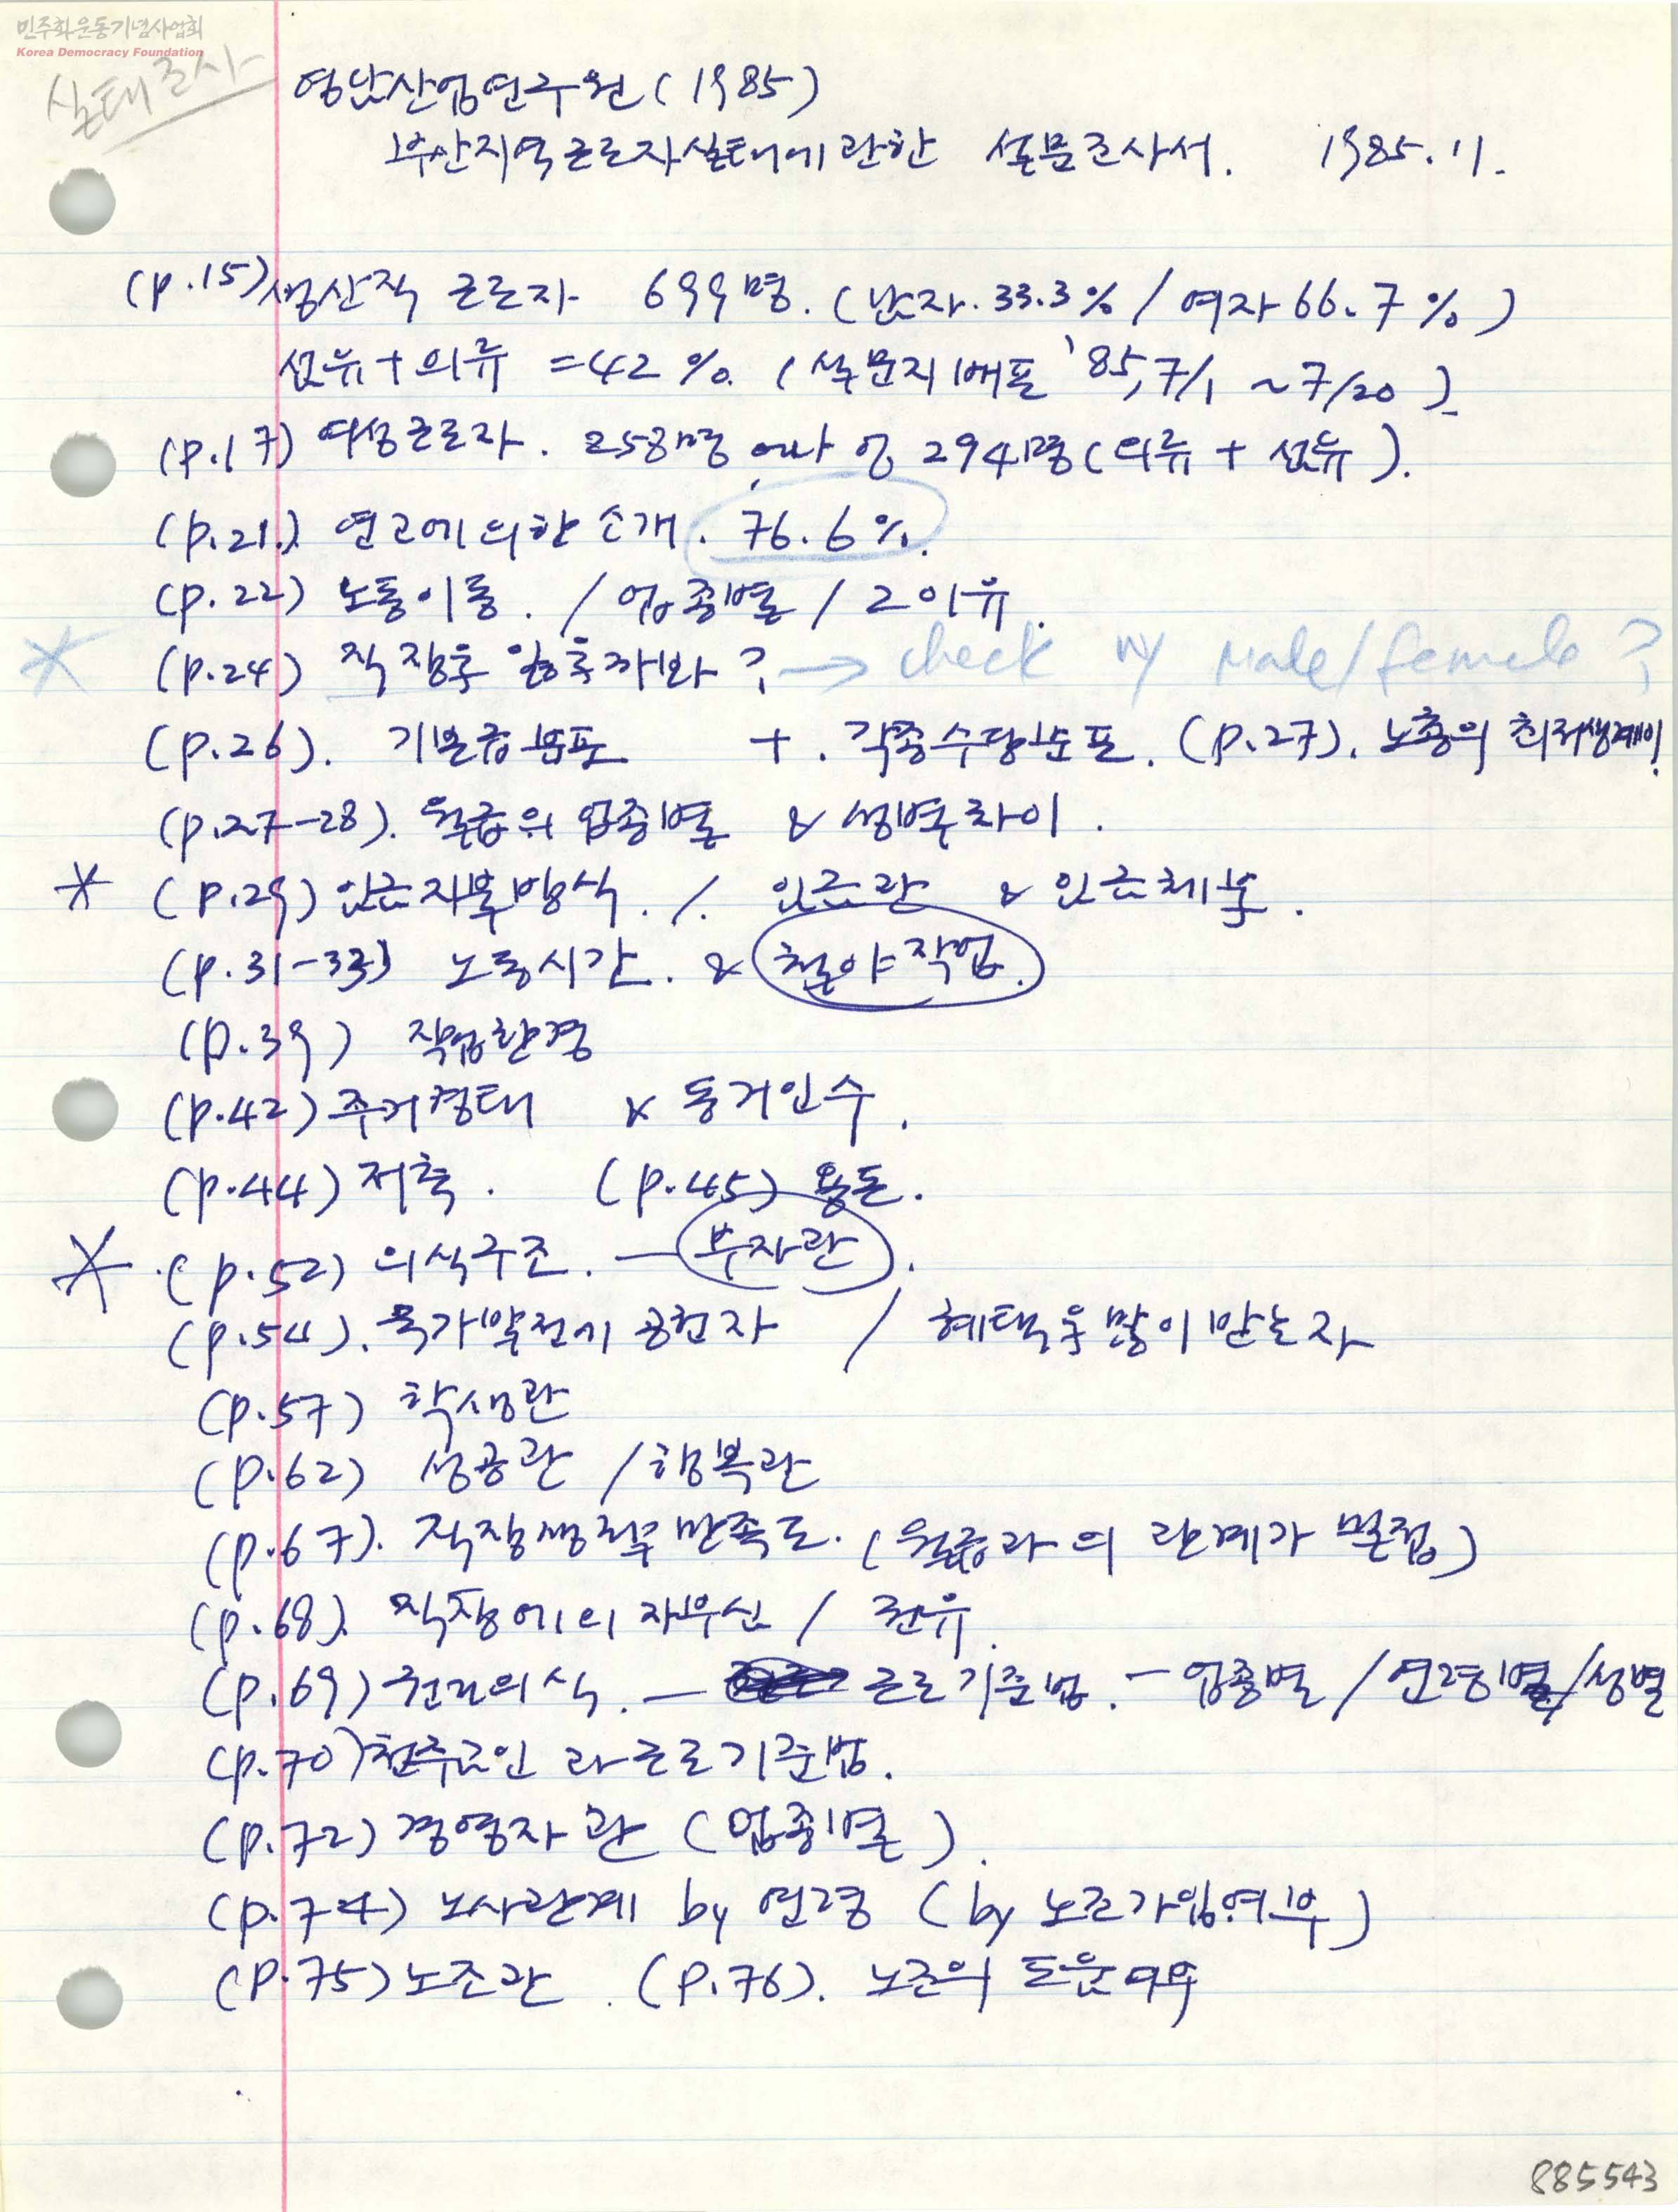 민주화운동기념사업회
Korea Democracy Foundation
실태조사
영남산업연구원 (1985)
부산지역근로자실태에관한 설문조사서. 1985. 11.
(p.15) 생산직 근로자 699명. (남자. 33.3% / 여자 66.7%)
섬유+의류 = 42%. (설문지배포 '85, 7/1 ~ 7/20)
(p.17) 여성근로자. 258명 294명 (의류 + 섬유).
(p.21.) 연고에 의한 소개. 76.6%.
(p.22) 노동이동. / 업종별 / 그 이유.
* (p.24) 직장훈 ? → check w/ Male/female ?
(p.26). 기본급분포 + . 각종수당분포. (p.27). 노총의 최저생계비!
(p.27-28). 월급의 업종별 & 성별차이.
* (p.29) 임금지불방식. / . 임금관 & 임금체불.
(p.31-33) 노동시간. & 철야작업.
(p.39) 작업환경
(p.42) 주거형태 & 동거인수.
(p.44) 저축. (p.45) 용돈.
* (p.52) 의식구조. — 부자관.
(p.54). 국가발전에 공헌자 / 혜택을 많이 받는자
(p.57) 학생관
(p.62) 성공관 / 행복관
(p.67). 직장생활만족도. (월급과의 관계가 밀접)
(p.68). 직장에의 자부심 / 권유.
(p.69) 권리의식. — 근로기준법. — 업종별 / 연령별 / 성별
(p.70) 천주교인과 근로기준법.
(p.72) 경영자관 (업종별).
(p.74) 노사관계 by 연령 (by 노조가입여부)
(p.75) 노조관. (p.76). 노조의 도움여부
885543